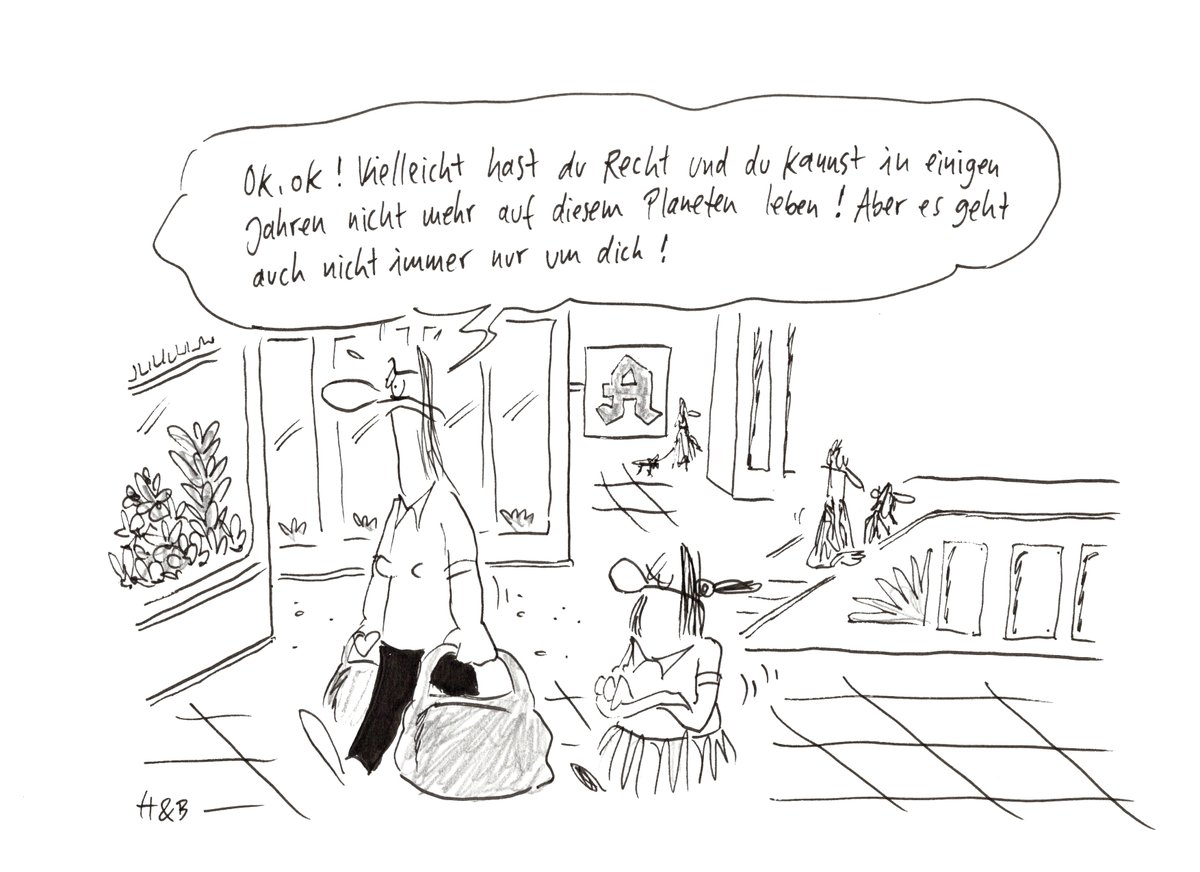 Ok, ok! Vielleicht hast du Recht und du kannst in einigen
Jahren nicht mehr auf diesem Planeten leben! Aber es geht
auch nicht immer nur um dich!
A
H&B